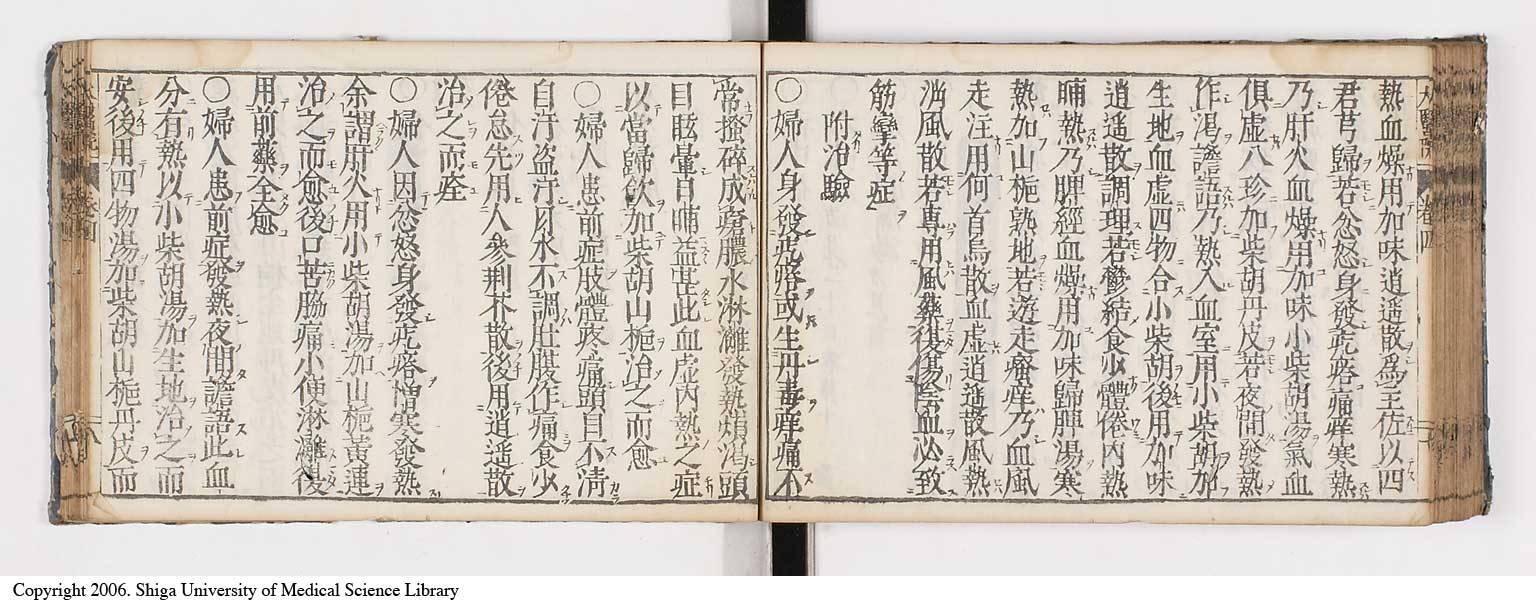 熱血燥用加味逍遥散爲主佐以四
君芎歸若忿怒身發疙瘩痛痒寒熱
乃肝火血燥用加味小柴胡湯氣血
俱虚八珍加柴胡丹皮若夜間發熱
作渇譫語乃熱入血室用小柴胡加
生地血虚四物合小柴胡後用加味
逍遥散調理若鬱結食少體倦内熱
晡熱乃脾經血燥用加味歸脾湯寒
熱加山栀熟地若遊走瘙痒乃血風
走注用何首烏散血虚逍遥散風熱
消風散若專用風藥復傷陰血必致
筋攣等症
附治驗
〇婦人身發疙瘩或生丹毒痒痛不
常搔碎成瘡膿水淋漓發熱煩渇頭
目眩暈日晡益甚此血虚内熱之症
以當歸飲加柴胡山栀治之而愈
〇婦人患前症肢體疼痛頭目不清
自汗盗汗月水不調肚腹作痛食少
倦怠先用人參荆芥散後用逍遥散
治之而痊
〇婦人因忿怒身發疙瘩憎寒發熱
余謂肝火用小柴胡湯加山栀黄連
治之而愈後口苦脇痛小便淋漓復
用前藥全愈
〇婦人患前症發熱夜間譫語此血
分有熱以小柴胡湯加生地治之而
安後用四物湯加柴胡山栀丹皮而